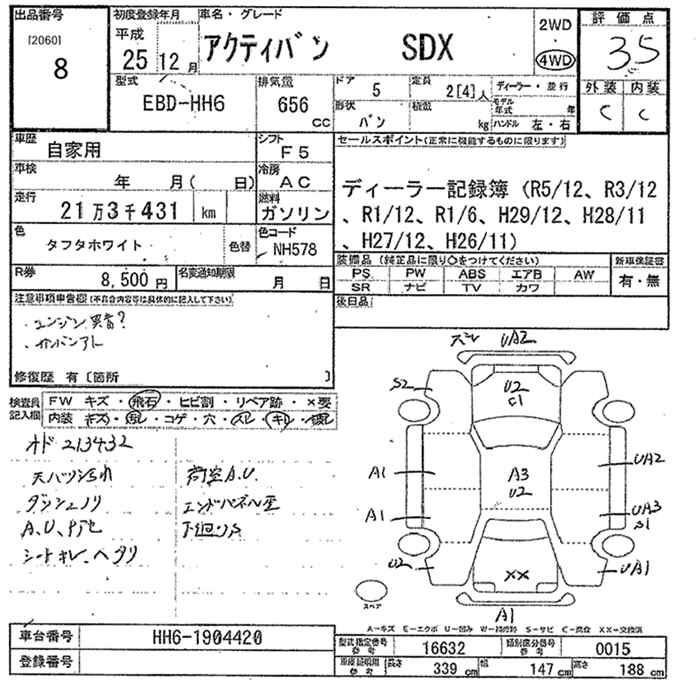 出品番号
[2060]
8
初度登録年月
平成
25 12月
車名・グレード
アクティバン SDX
2WD
4WD
評価点
3.5
外装 内装
C C
型式
EBD-HH6
排気量
656
cc
ドア
5
定員
2[4]人
形状
バン
積載
kg
ディーラー・並行
モデル年式 年
ハンドル 左・右
車歴
自家用
シフト
F5
セールスポイント(正常に機能するものに限ります)
車検
年 月( 日)
冷房
AC
走行
21万3千431 km
燃料
ガソリン
ディーラー記録簿(R5/12、R3/12
、R1/12、R1/6、H29/12、H28/11
、H27/12、H26/11)
色
タフタホワイト
色替
色コード
NH578
装備品(純正品に限り○をつけてください)
PS PW ABS エアB AW
SR ナビ TV カワ
新車保証書
有・無
R券
8,500円
名変通知期限
月 日
後日品
注意事項申告欄(不具合内容等は具体的に記入して下さい)
・エンジン異音?
・カバンアト
修復歴 有〔箇所 〕
検査員記入欄
FW キズ・飛石・ヒビ割・リペア跡・×要
内装 キズ・汚レ・コゲ・穴・スレ・キレ・
オド 213432
ダッシュノリ
シートキレ、ヘタリ
荷室A.U.
下廻りS
ズレ UA2
S2
U2
C1
A1
A3
U2
UA2
A1
UA3
S1
U2
XX
UA1
スペア
A1
A−キズ E−エクボ U−凹み W−補修跡 S−サビ C−腐食 XX−交換済
車台番号
HH6-1904420
登録番号
型式指定番号
参考
16632
類別区分番号
参考
0015
車検証記載
参考
長さ 339 cm 幅 147 cm 高さ 188 cm